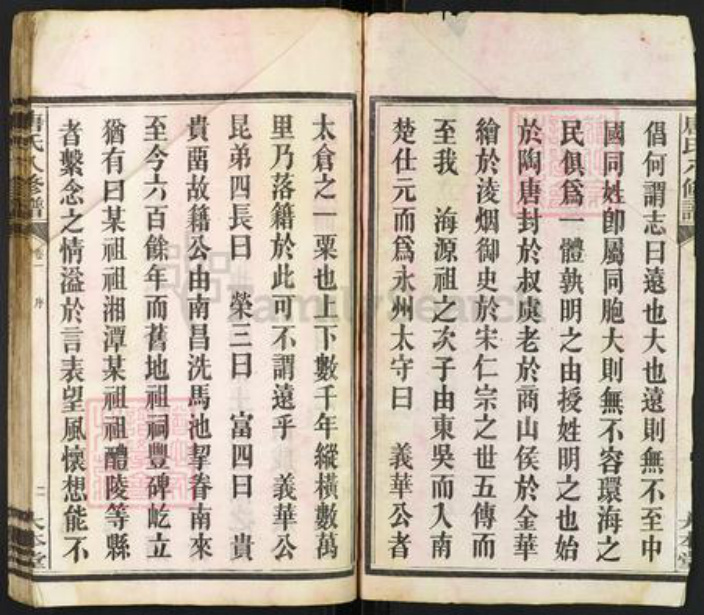 倡何謂志曰遠也大也遠則無不至中
國同姓卽屬同胞大則無不容環海之
民俱爲一體孰明之由授姓明之也始
於陶唐封於叔虞老於商山侯於金華
繪於淩烟御史於宋仁宗之世五傳而
至我 海源祖之次子由東吳而入南
楚仕元而爲永州太守曰 義華公者
太倉之一粟也上下數千年縱橫數萬
里乃落籍於此可不謂遠乎 義華公
昆弟四長曰 榮三曰 富四曰 貴
貴畱故籍公由南昌洗馬池挈眷南來
至今六百餘年而舊地祖祠豐碑屹立
猶有曰某祖祖湘潭某祖祖醴陵等縣
者繫念之情溢於言表望風懷想能不
唐氏八修譜
卷一 序
二
大本堂
FamilySearch